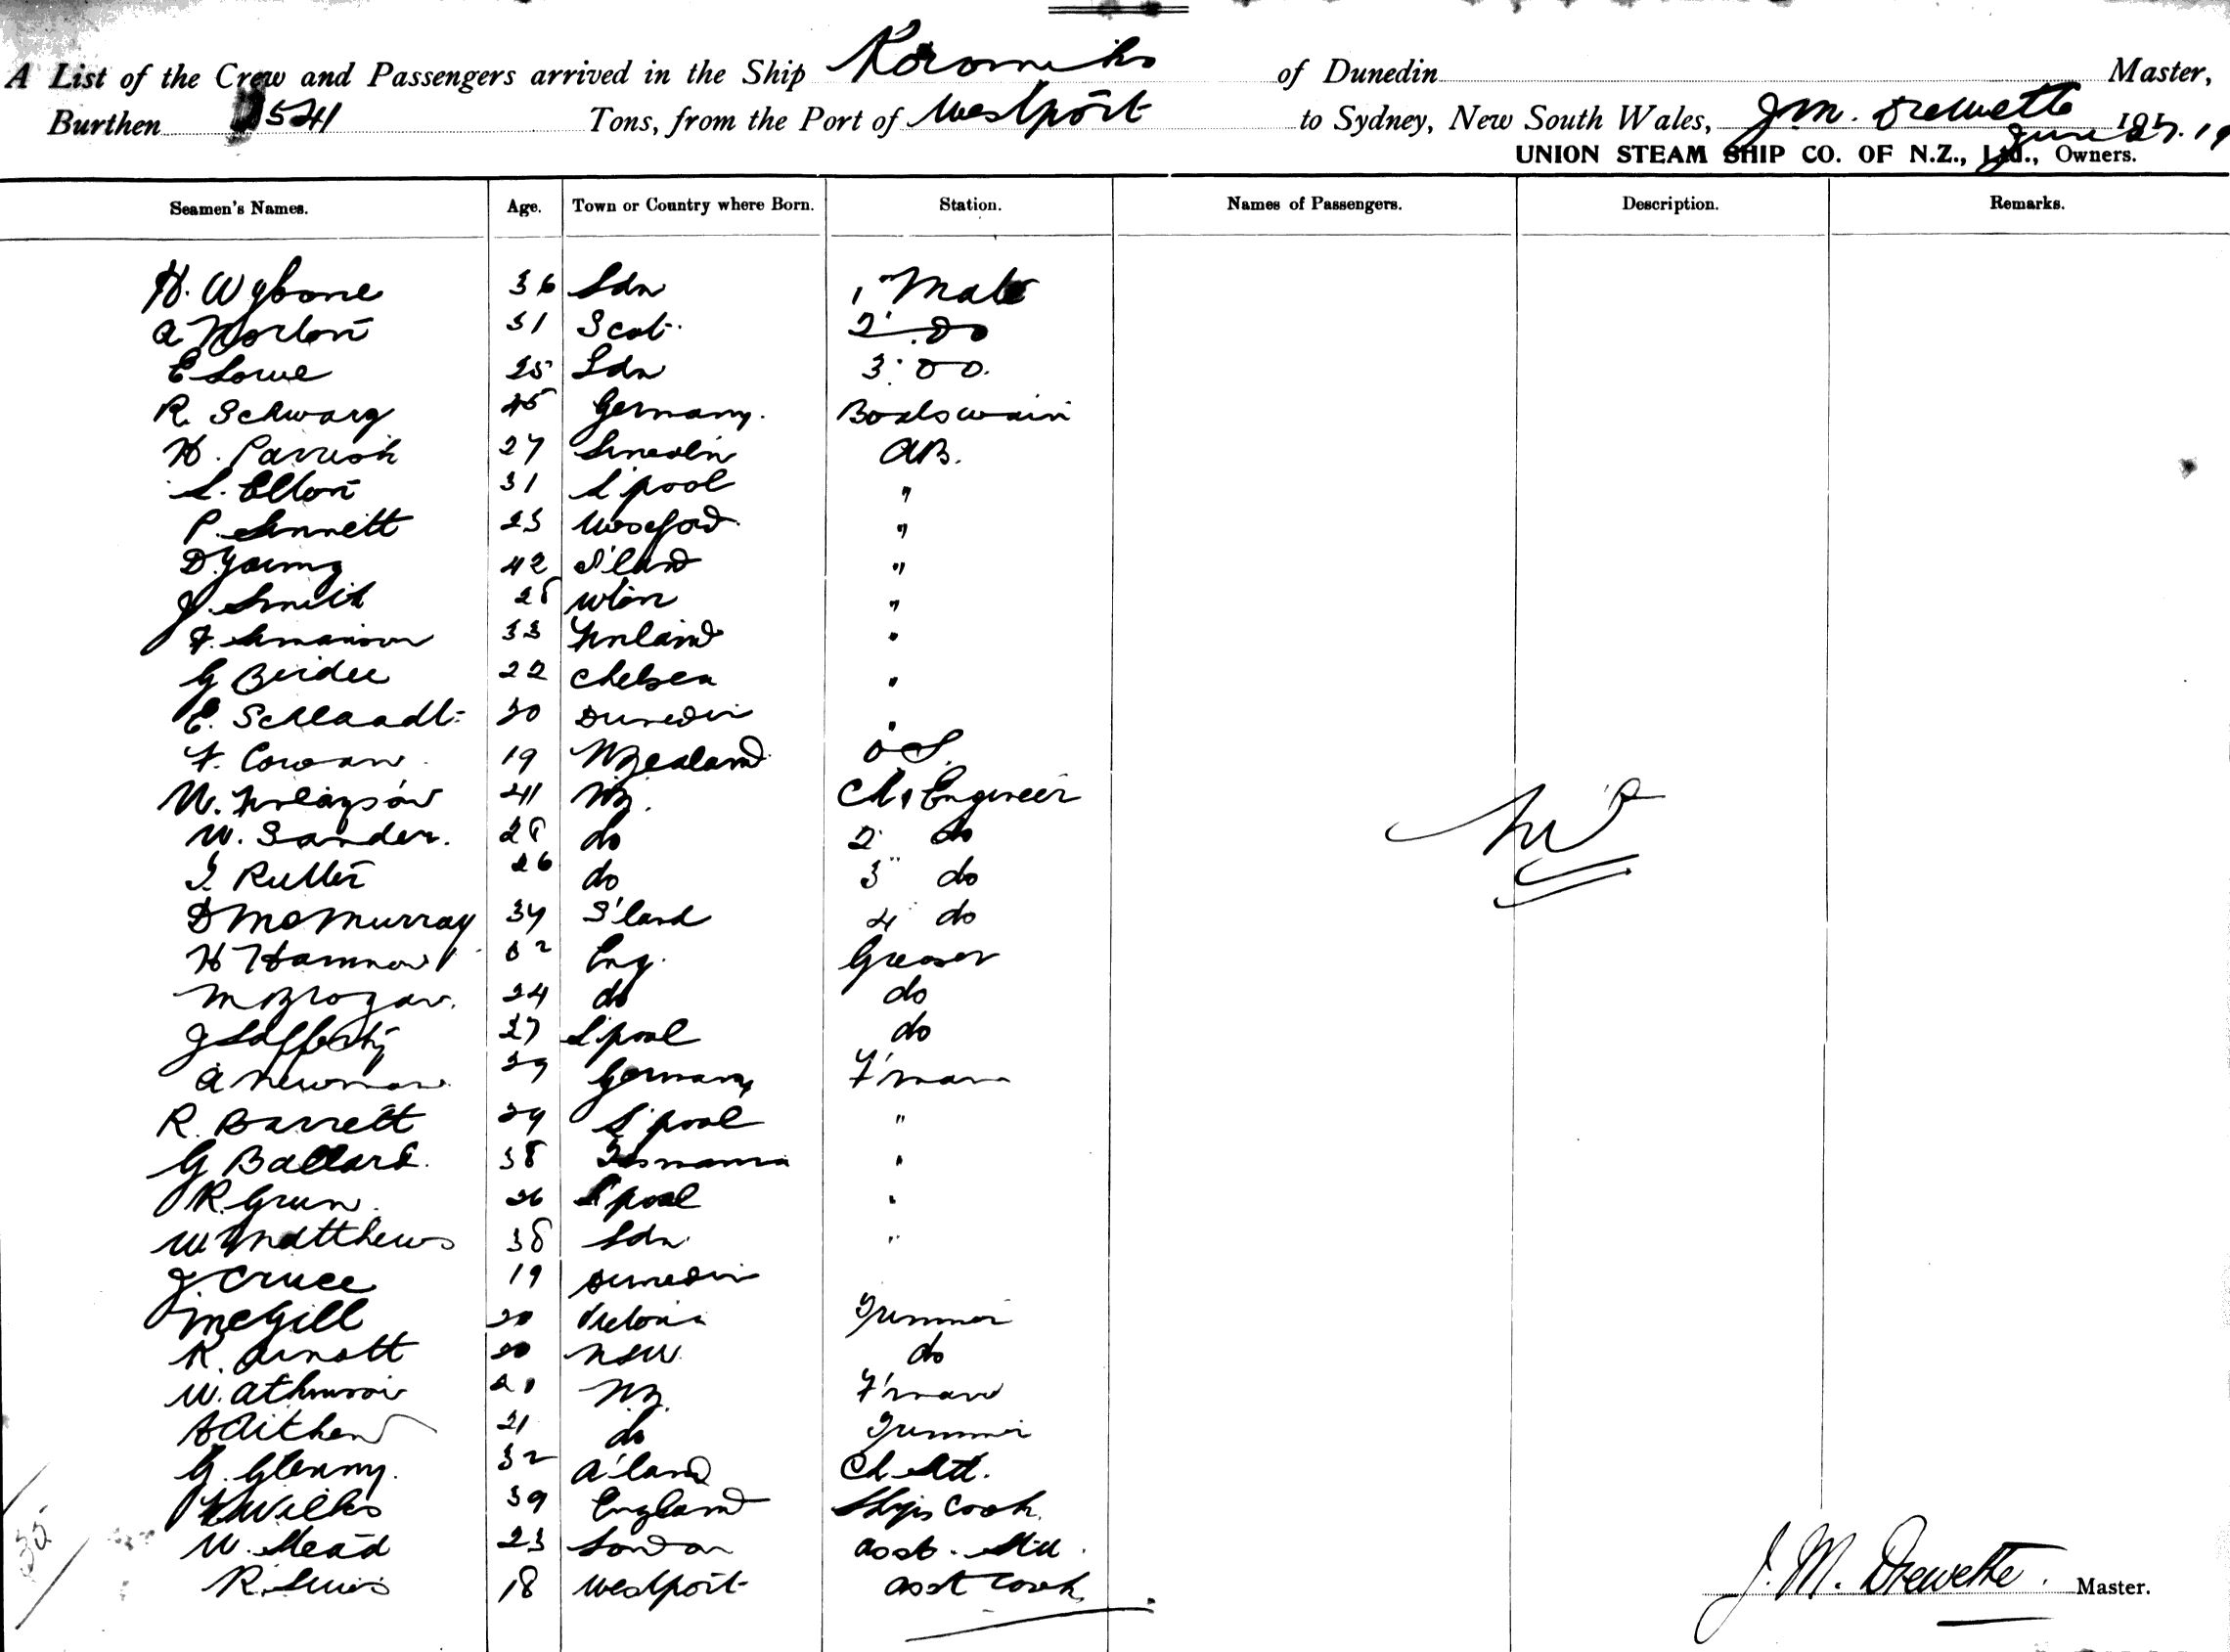 A List of the Crew and Passengers arrived in the Ship Koromiko of Dunedin Master,
Burthen 1541 Tons, from the Port of Westport to Sydney, New South Wales, J.M. Drewette 191
June 27. 19
UNION STEAM SHIP CO. OF N.Z., Ltd., Owners.
Seamen's Names. Age. Town or Country where Born. Station. Names of Passengers. Description. Remarks.
H. Wybone 36 Ldn 1 Mate
A Norton 31 Scot. 2 Do
E Lowe 25 Ldn 3 Do.
R. Schwarg 45 Germany. Boatswain
H. Parrish 27 Lincoln AB.
L. Elton 31 L'pool "
P. Sinnett 23 Wexford "
D. Young 42 S'land "
J. Smith 28 Wton "
F. 33 Finland "
G Birdee 22 Chelsea "
E. Schlaadt 30 Dunedin "
F. Cowan 19 N Zealand OS.
W. Finlayson 41 NZ. Ch. Engineer
W. Sander. 28 do 2 do
I. Rutter 26 do 3 do
D McMurray 34 S'land 4 do
H Hammow 32 Eng. Greaser
M Brogan. 24 do do
J Lafferty 27 L'pool do
A Newman 29 Germany F'man
R. Barrett 29 L'pool "
G Ballard. 38 Tasmania "
R. Grun 26 L'pool "
W Matthews 38 Ldn "
J. Cruce 19 Dunedin
McGill 20 Victoria Trimmer
R. Arnott 20 NSW. do
W. Athinson 21 NZ. F'man
A Aitken 21 do Trimmer
G. Glenny. 32 A'land Ch Std.
Wilks 39 England Ships Cook
W. Mead 23 London asst. Std.
R. Lewis 18 Westport asst Cook
Nil
35
J. M. Drewette. Master.